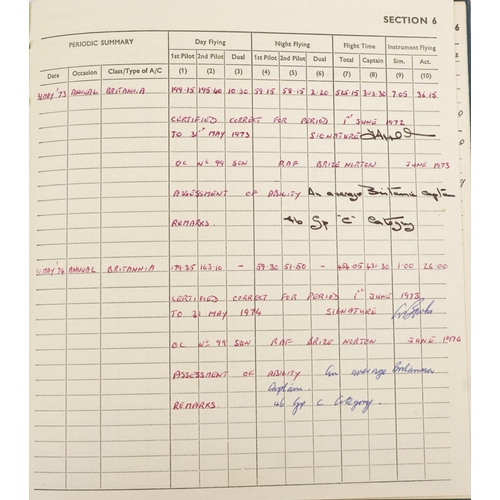 SECTION 6
PERIODIC SUMMARY Day Flying Night Flying Flight Time Instrument Flying
1st Pilot 2nd Pilot Dual 1st Pilot 2nd Pilot Dual Total Captain Sim. Act.
Date Occasion Class/Type of A/C (1) (2) (3) (4) (5) (6) (7) (8) (9) (10)
31 MAY '73 ANNUAL BRITANNIA 199.15 195.40 10.30 59.15 58.15 2.20 525.15 303.30 7.05 36.15
CERTIFIED CORRECT FOR PERIOD 1st JUNE 1972
TO 31st MAY 1973 SIGNATURE
OC No 99 SQN RAF BRIZE NORTON JUNE 1973
ASSESSMENT OF ABILITY An average Britannia captain
REMARKS. 46 Gp "C" Category
31 MAY '74 ANNUAL BRITANNIA 179.35 163.10 - 59.30 51.50 - 454.05 431.30 1.00 26.00
CERTIFIED CORRECT FOR PERIOD 1st JUNE 1973
TO 31 MAY 1974 SIGNATURE
OC No 99 SQN RAF BRIZE NORTON JUNE 1974
ASSESSMENT OF ABILITY An average Britannia
Captain.
REMARKS. 46 Gp C Category.